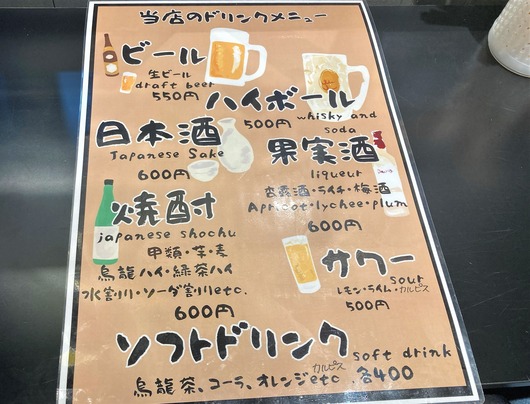 当店のドリンクメニュー
ビール
生ビール
draft beer
550円
ハイボール
whisky and
soda
500円
日本酒
Japanese Sake
600円
果実酒
liqueur
杏露酒・ライチ・梅酒
Apricot・lychee・plum
600円
焼酎
japanese shochu
甲類・芋・麦
烏龍ハイ・緑茶ハイ
水割り・ソーダ割りetc.
600円
サワー
sour
レモン・ライム・カルピス
500円
ソフトドリンク
soft drink
カルピス
烏龍茶、コーラ、オレンジetc. 各400